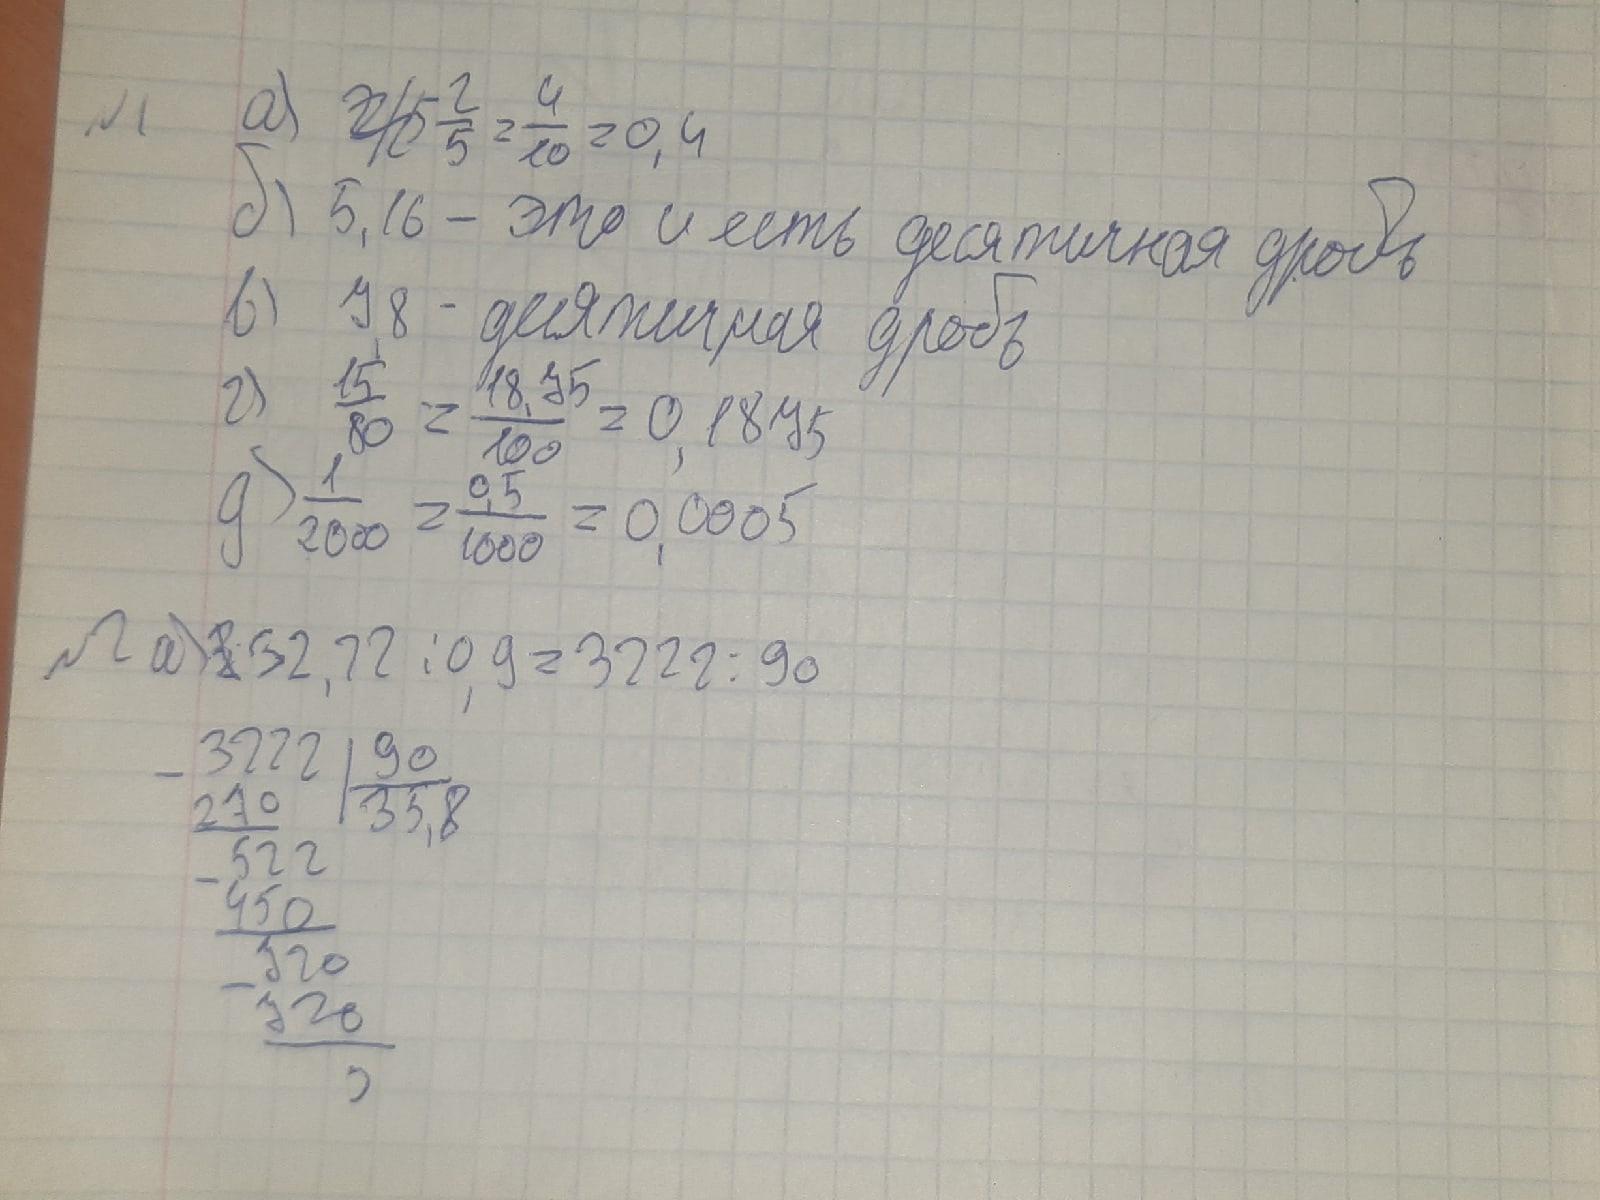 №1 а) 2/5 2/5 = 4/10 = 0,4
б) 5,16 – это и есть десятичная дробь
в) 7,8 - десятичная дробь
г) 15/80 = 18,75/100 = 0,1875
д) 1/2000 = 0,5/1000 = 0,0005
№2 а) 32,22 : 0,9 = 3222 : 90
– 3222 | 90
270 35,8
– 522
450
– 720
720
0